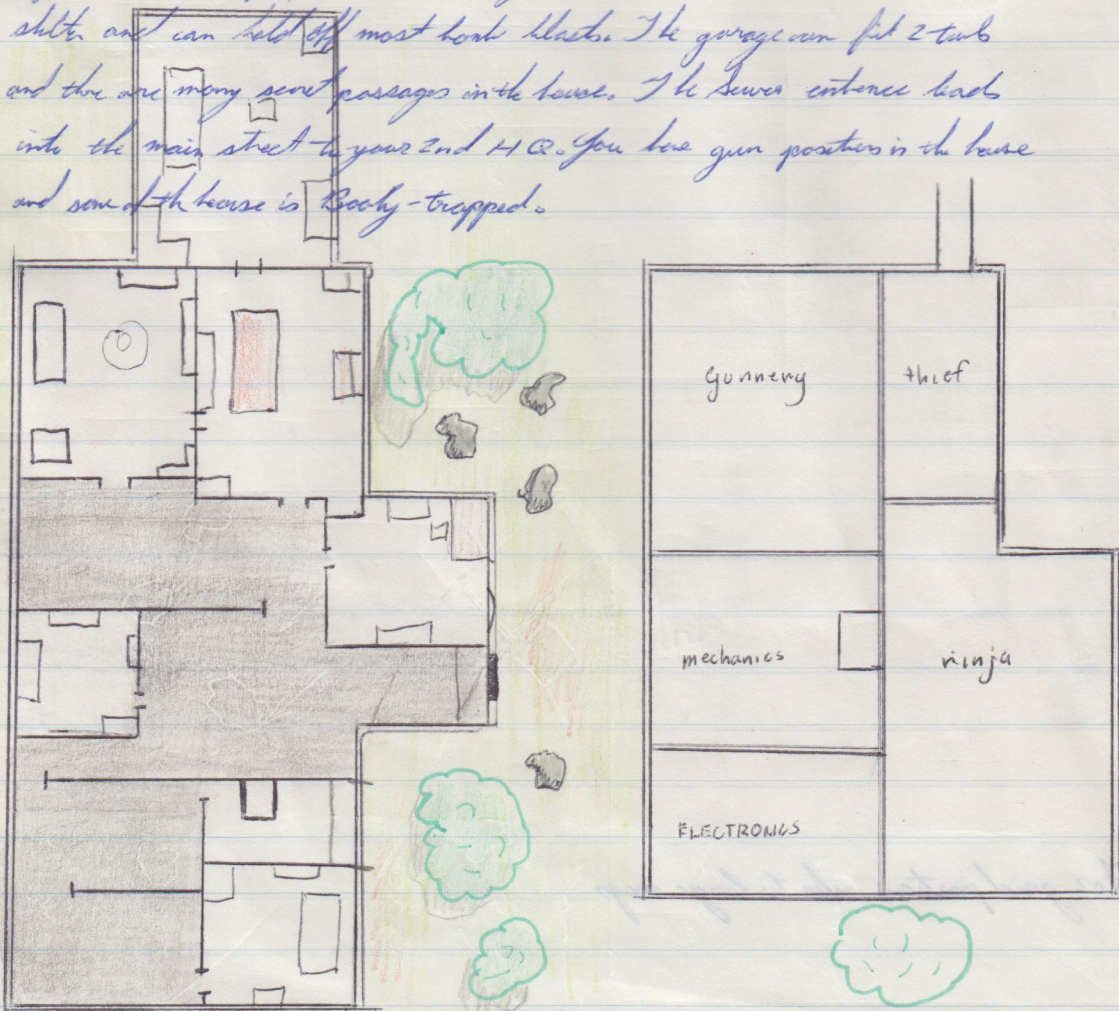 and can hold off most bomb blasts. The garage can fit 2
and there are many secret passages in the house. The Sewer entence leads
into the main street to your 2nd HQ. You have gun positions in the house
and some of th house is Booby-trapped.
Gunnery
thief
mechanics
ninja
ELECTRONICS